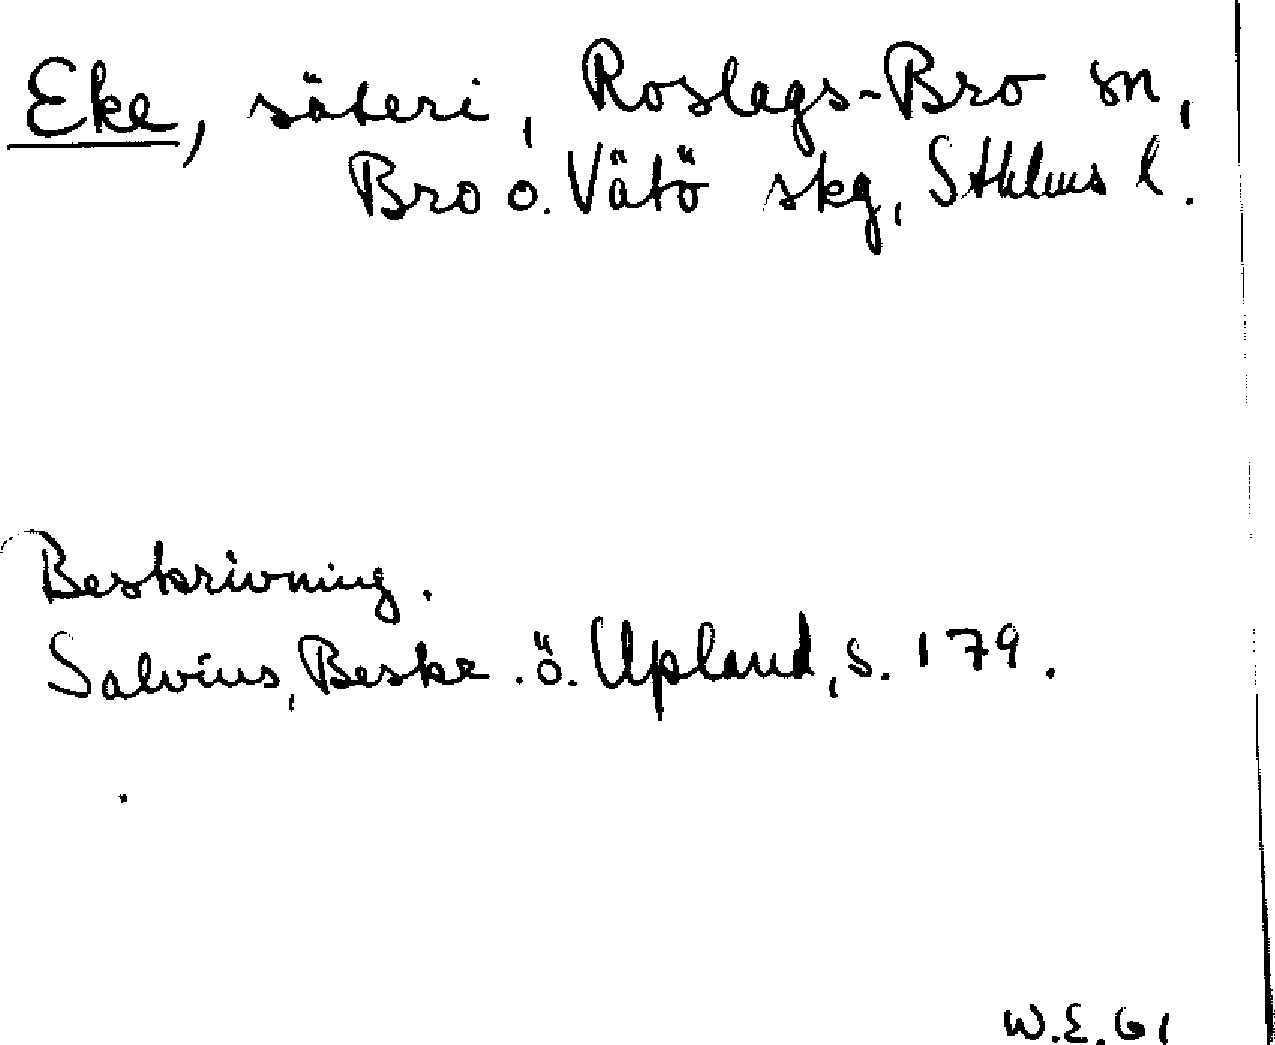 Eke, säteri, Roslags-Bro sn,
Bro o. Vätö skg, Sthlms l.
Beskrivning.
Salvius, Beskr. ö. Upland, s. 179.
W.E. 61